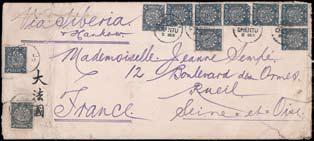 Via Siberia
+ Hankow
CHENGTU
Mademoiselle Jeanne Sempé
12 Boulevard des Ormes
Rueil
Seine-et-Oise
France
大法國